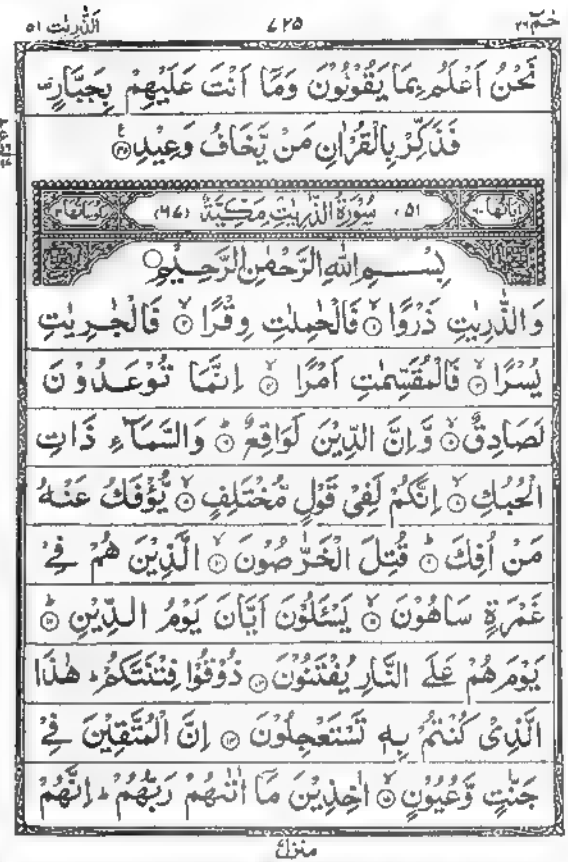 حٰمٓ ٢٦ ٤٢٥ الذّٰرِیٰت ٥١
نَحْنُ اَعْلَمُ بِمَا یَقُوْلُوْنَ وَمَاۤ اَنْتَ عَلَیْهِمْ بِجَبَّارٍ
فَذَكِّرْ بِالْقُرْاٰنِ مَنْ یَّخَافُ وَعِیْدِ ﴿٤٥﴾
اٰیَاتُهَا ٦٠ (٥١) سُوْرَةُ الذّٰرِیٰتِ مَكِّیَّةٌ (٦٧) رُكُوْعَاتُهَا ٣
بِسْمِ اللّٰهِ الرَّحْمٰنِ الرَّحِیْمِ
وَالذّٰرِیٰتِ ذَرْوًا ﴿١﴾ فَالْحٰمِلٰتِ وِقْرًا ﴿٢﴾ فَالْجٰرِیٰتِ
یُسْرًا ﴿٣﴾ فَالْمُقَسِّمٰتِ اَمْرًا ﴿٤﴾ اِنَّمَا تُوْعَدُوْنَ
لَصَادِقٌ ﴿٥﴾ وَّاِنَّ الدِّیْنَ لَوَاقِعٌ ﴿٦﴾ وَالسَّمَآءِ ذَاتِ
الْحُبُكِ ﴿٧﴾ اِنَّكُمْ لَفِیْ قَوْلٍ مُّخْتَلِفٍ ﴿٨﴾ یُّؤْفَكُ عَنْهُ
مَنْ اُفِكَ ﴿٩﴾ قُتِلَ الْخَرّٰصُوْنَ ﴿١٠﴾ الَّذِیْنَ هُمْ فِیْ
غَمْرَةٍ سَاهُوْنَ ﴿١١﴾ یَسْـَٔلُوْنَ اَیَّانَ یَوْمُ الدِّیْنِ ﴿١٢﴾
یَوْمَ هُمْ عَلَی النَّارِ یُفْتَنُوْنَ ﴿١٣﴾ ذُوْقُوْا فِتْنَتَكُمْ ؕ هٰذَا
الَّذِیْ كُنْتُمْ بِهٖ تَسْتَعْجِلُوْنَ ﴿١٤﴾ اِنَّ الْمُتَّقِیْنَ فِیْ
جَنّٰتٍ وَّعُیُوْنٍ ﴿١٥﴾ اٰخِذِیْنَ مَاۤ اٰتٰىهُمْ رَبُّهُمْ ؕ اِنَّهُمْ
منزل